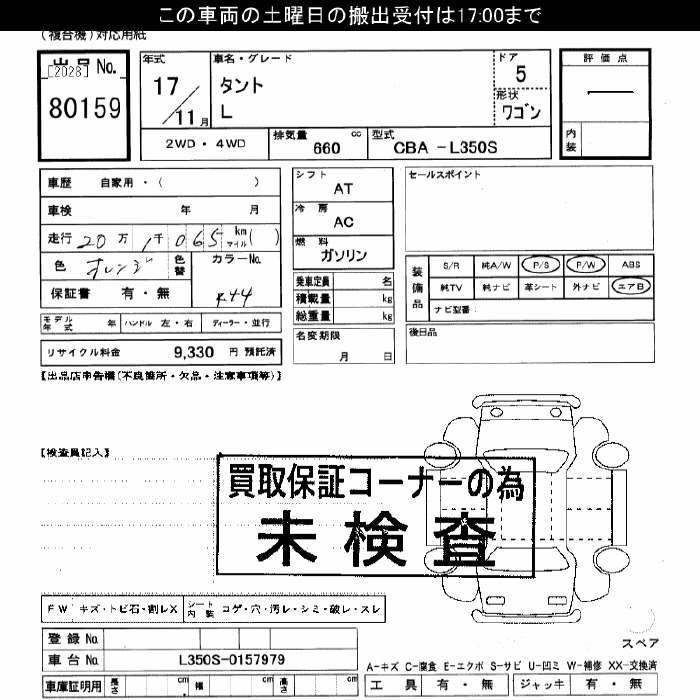 この車両の土曜日の搬出受付は17:00まで
(複合機)対応用紙
出品 No.
[2028]
80159
年式
17/11月
車名・グレード
タント
L
ドア
5
形状
ワゴン
評価点
―
内装
2WD・4WD
排気量 cc
660
型式
CBA -L350S
車歴 自家用・( )
車検 年 月
走行 20万 1千 065 km マイル ( )
色 オレンジ
色替
カラーNo.
R44
保証書 有・無
モデル年式 年
ハンドル 左・右
ディーラー・並行
リサイクル料金 9,330 円 預託済
シフト
AT
冷房
AC
燃料
ガソリン
乗車定員 名
積載量 kg
総重量 kg
名変期限
月 日
セールスポイント
装備品
S/R 純A/W P/S P/W ABS
純TV 純ナビ 革シート 外ナビ エアB
ナビ型番
後日品
【出品店申告欄(不良箇所・欠品・注意事項等)】
【検査員記入】
買取保証コーナーの為
未検査
FW キズ・トビ石・割レX
シート内装 コゲ・穴・汚レ・シミ・破レ・スレ
登録 No.
車台 No. L350S-0157979
車庫証明用 長さ cm 幅 cm 高さ cm
スペア
A-キズ C-腐食 E-エクボ S-サビ U-凹ミ W-補修 XX-交換済
工具 有・無 ジャッキ 有・無